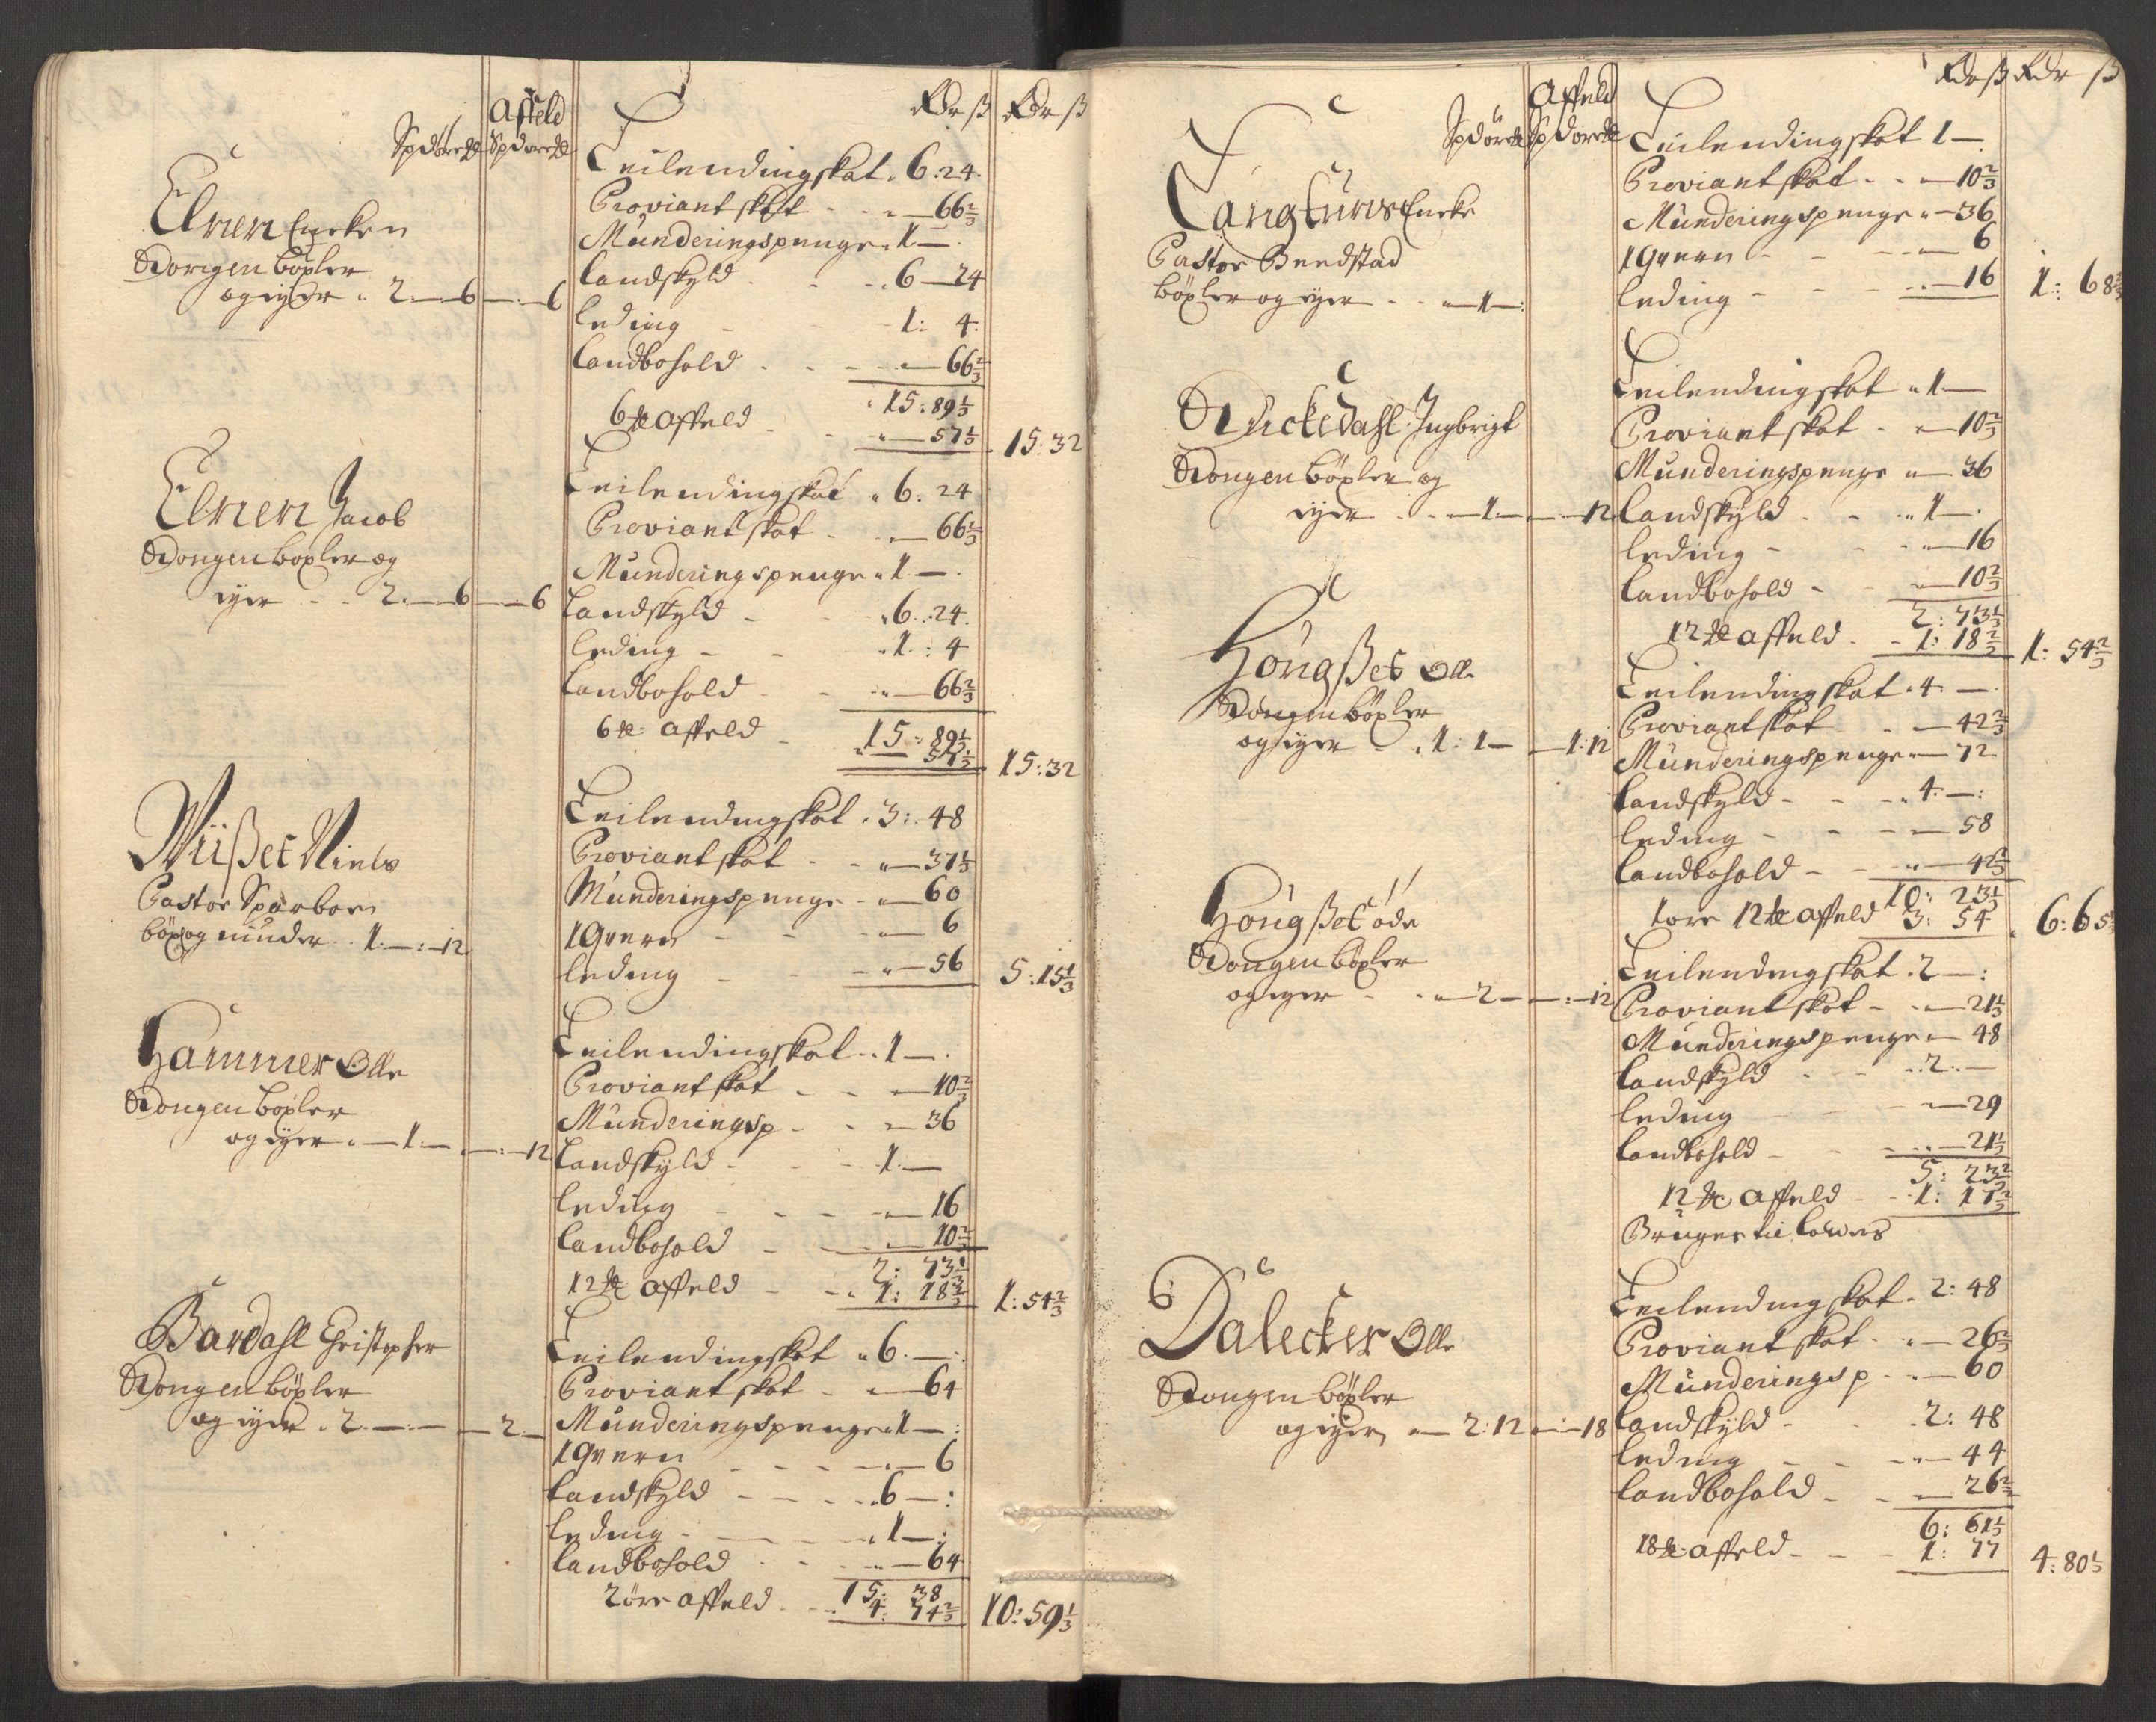 Affeld
Rdr ß Rdr ß
Spd öre Spd öre
Elnen Encken
Kongen böxler
og eyer 2 — 6 — 6
Leilendingskat 6:24
Proviantskat — 66⅔
Munderingspenge 1 —
Landskyld 6 — 24
leding 1: 4
Landbohold — 66⅔
15:89⅓
6 affeld — 57⅓ 15:32
Elnen Jacob
Kongen böxler og
eyer 2 — 6 — 6
Leilendingskat 6:24
Proviantskat — 66⅔
Munderingspenge 1 —
Landskyld 6:24
leding 1:4
Landbohold — 66⅔
15:89⅓
6 affeld — 57⅓ 15:32
Wiißet Niels
Pastor Sparboe
böx og under 1 — : — 12
Leilendingskat 3:48
Proviantskat — 37⅓
Munderingspenge — 60
1 Qvern — 6
leding — 56 5:15⅓
Hammer Olle
Kongen böxler
og eyer — 1 — — : — 12
Leilendingskat 1 —
Proviantskat — 10⅔
Munderingsp — 36
Landskyld 1 —
leding — 16
Landbohold — 10⅔
2: 73⅓
12 affeld 1: 18⅔ 1:54⅔
Bardahl Christopher
Kongen böxler
og eyer 2 — : — — 2 —
Leilendingskat 6 —
Proviantskat — 64
Munderingspenge 1 — :
1 Qvern — 6
Landskyld 6 — :
leding 1 — :
Landbohold — 64
15: 38
2 öre affeld 4: 74⅔ 10:59⅓
Affeld
Rdr ß Rdr ß
Spd öre Spd öre
Langtuns Encke
Pastor Beedstad
böxler og eyer — 1 — :
Leilendingskat 1 —
Proviantskat — 10⅔
Munderingspenge — 36
1 Qvern — 6
leding — 16 1: 68⅔
Ryckedahl Ingbrigt
Kongen böxler og
eyer — 1 — — 12
Leilendingskat 1 —
Proviantskat — 10⅔
Munderingspenge — 36
Landskyld 1 —
leding — 16
Landbohold — 10⅔
2: 73⅓
12 affeld 1: 18⅔ 1: 54⅔
Höugßet Olle
Kongen böxler
og eyer 1: 1 — — 1:12
Leilendingskat 4 —
Proviantskat — 42⅔
Munderingspenge — 72
Landskyld 4 — :
leding — 58
Landbohold — 42⅔
10: 23⅓
1 ore 12 affeld 3: 54 6:65
Höugßet öde
Kongen böxler
og eyer — 2 — — : — 12
Leilendingskat 2 — :
Proviantskat — 21⅓
Munderingspenge — 48
Landskyld 2 —
leding — 29
Landbohold — 21⅓
5: 23⅔
12 affeld 1: 17⅔
Bruges til
Dalecker Olle
Kongen böxler
og eyer — 2:12 — : — 18
Leilendingskat 2: 48
Proviantskat — 26⅔
Munderingsp — 60
Landskyld 2: 48
leding — 44
Landbohold — 26⅔
6: 61⅓
18 affeld 1: 77 4:80⅓